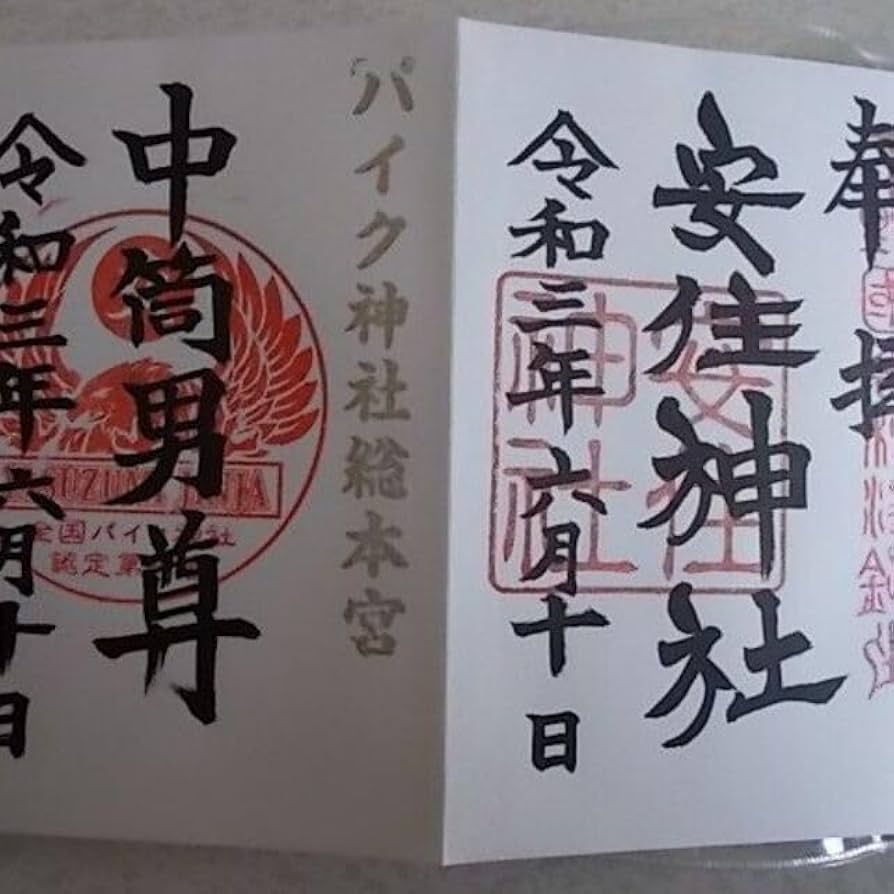 奉拝
安住神社
安住神社
令和三年六月十日
バイク神社総本宮
中筒男尊
全国バイク神社
認定第
令和三年六月十日